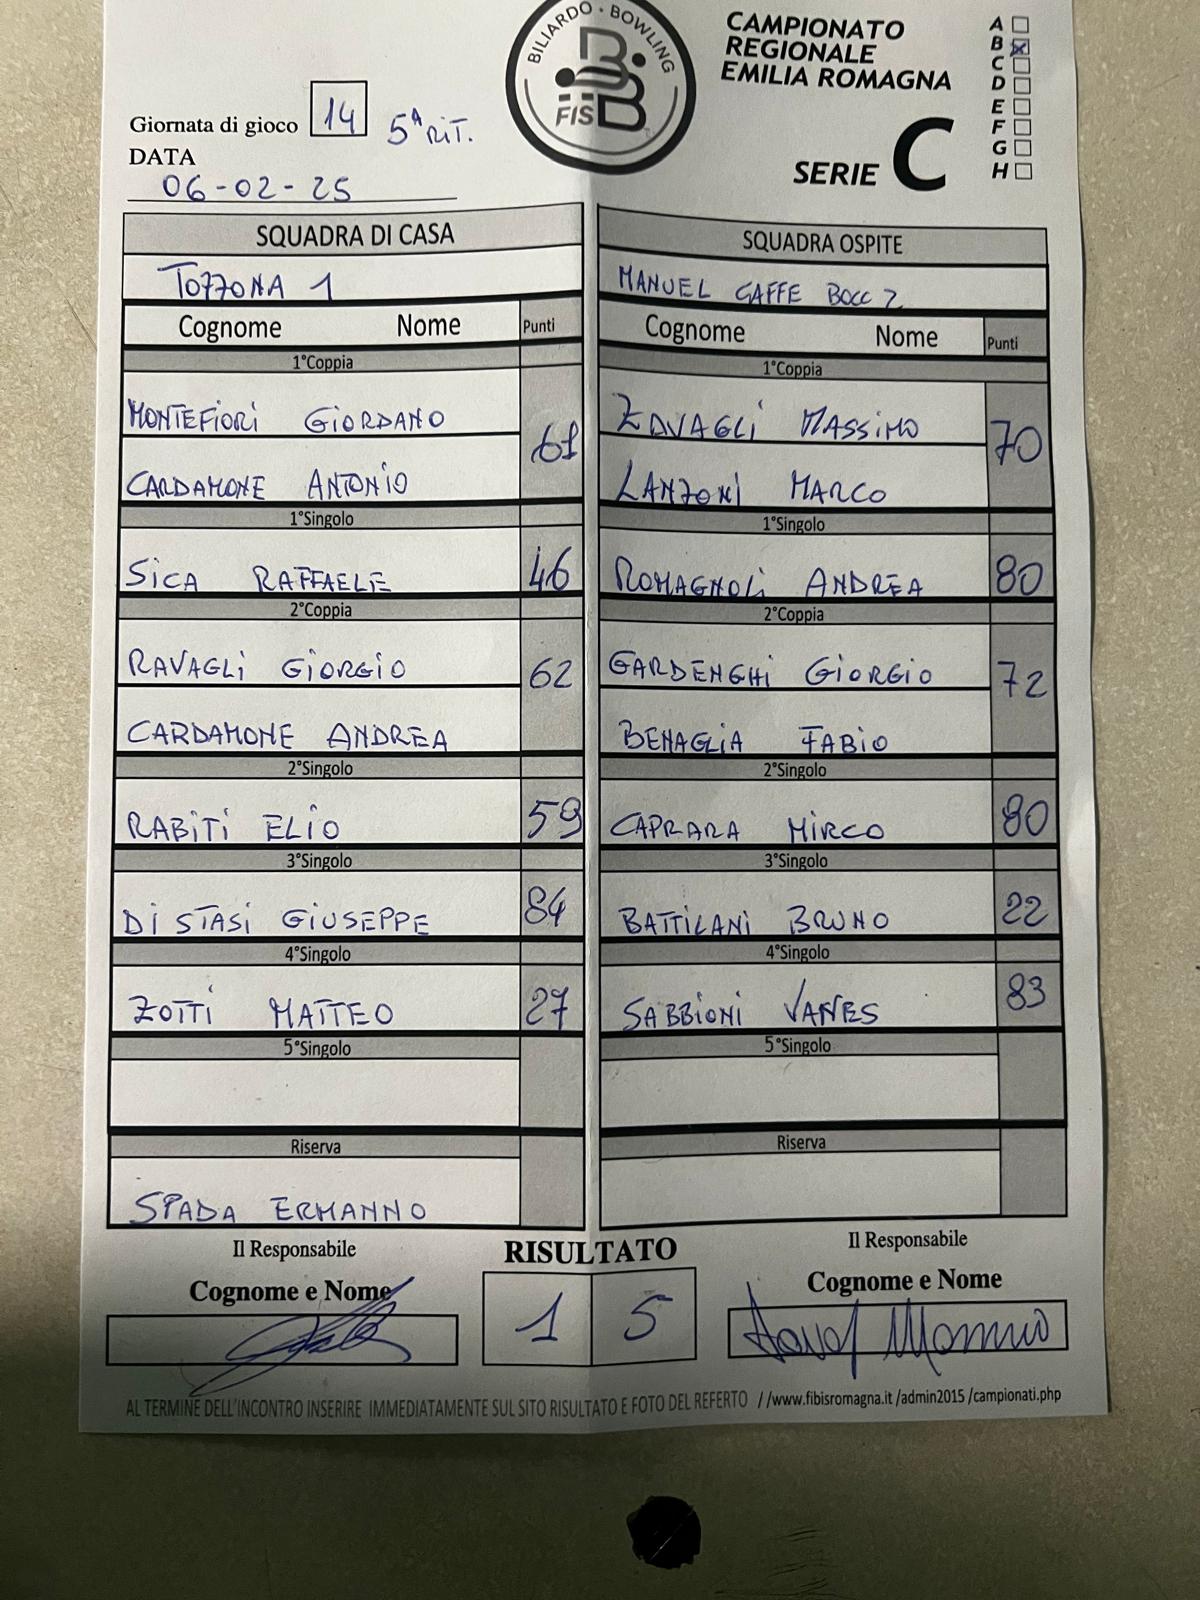 BILIARDO · BOWLING
FISBB
CAMPIONATO
REGIONALE
EMILIA ROMAGNA
SERIE C
A
B
C
D
E
F
G
H
Giornata di gioco 14 5ª RIT.
DATA
06-02-25
SQUADRA DI CASA
TOZZONA 1
Cognome Nome Punti
1°Coppia
MONTEFIORI GIORDANO
61
CARDAMONE ANTONIO
1°Singolo
SICA RAFFAELE 46
2°Coppia
RAVAGLI GIORGIO
62
CARDAMONE ANDREA
2°Singolo
RABITI ELIO 59
3°Singolo
DI STASI GIUSEPPE 84
4°Singolo
ZOTTI MATTEO 27
5°Singolo
Riserva
SPADA ERMANNO
SQUADRA OSPITE
MANUEL CAFFE BOCC 2
Cognome Nome Punti
1°Coppia
ZAVAGLI MASSIMO
70
LANZONI MARCO
1°Singolo
ROMAGNOLI ANDREA 80
2°Coppia
GARDENGHI GIORGIO
72
BENAGLIA FABIO
2°Singolo
CAPRARA MIRCO 80
3°Singolo
BATTILANI BRUNO 22
4°Singolo
SABBIONI VANES 83
5°Singolo
Riserva
Il Responsabile
Cognome e Nome
RISULTATO
1 5
Il Responsabile
Cognome e Nome
AL TERMINE DELL'INCONTRO INSERIRE IMMEDIATAMENTE SUL SITO RISULTATO E FOTO DEL REFERTO //www.fibisromagna.it /admin2015 /campionati.php